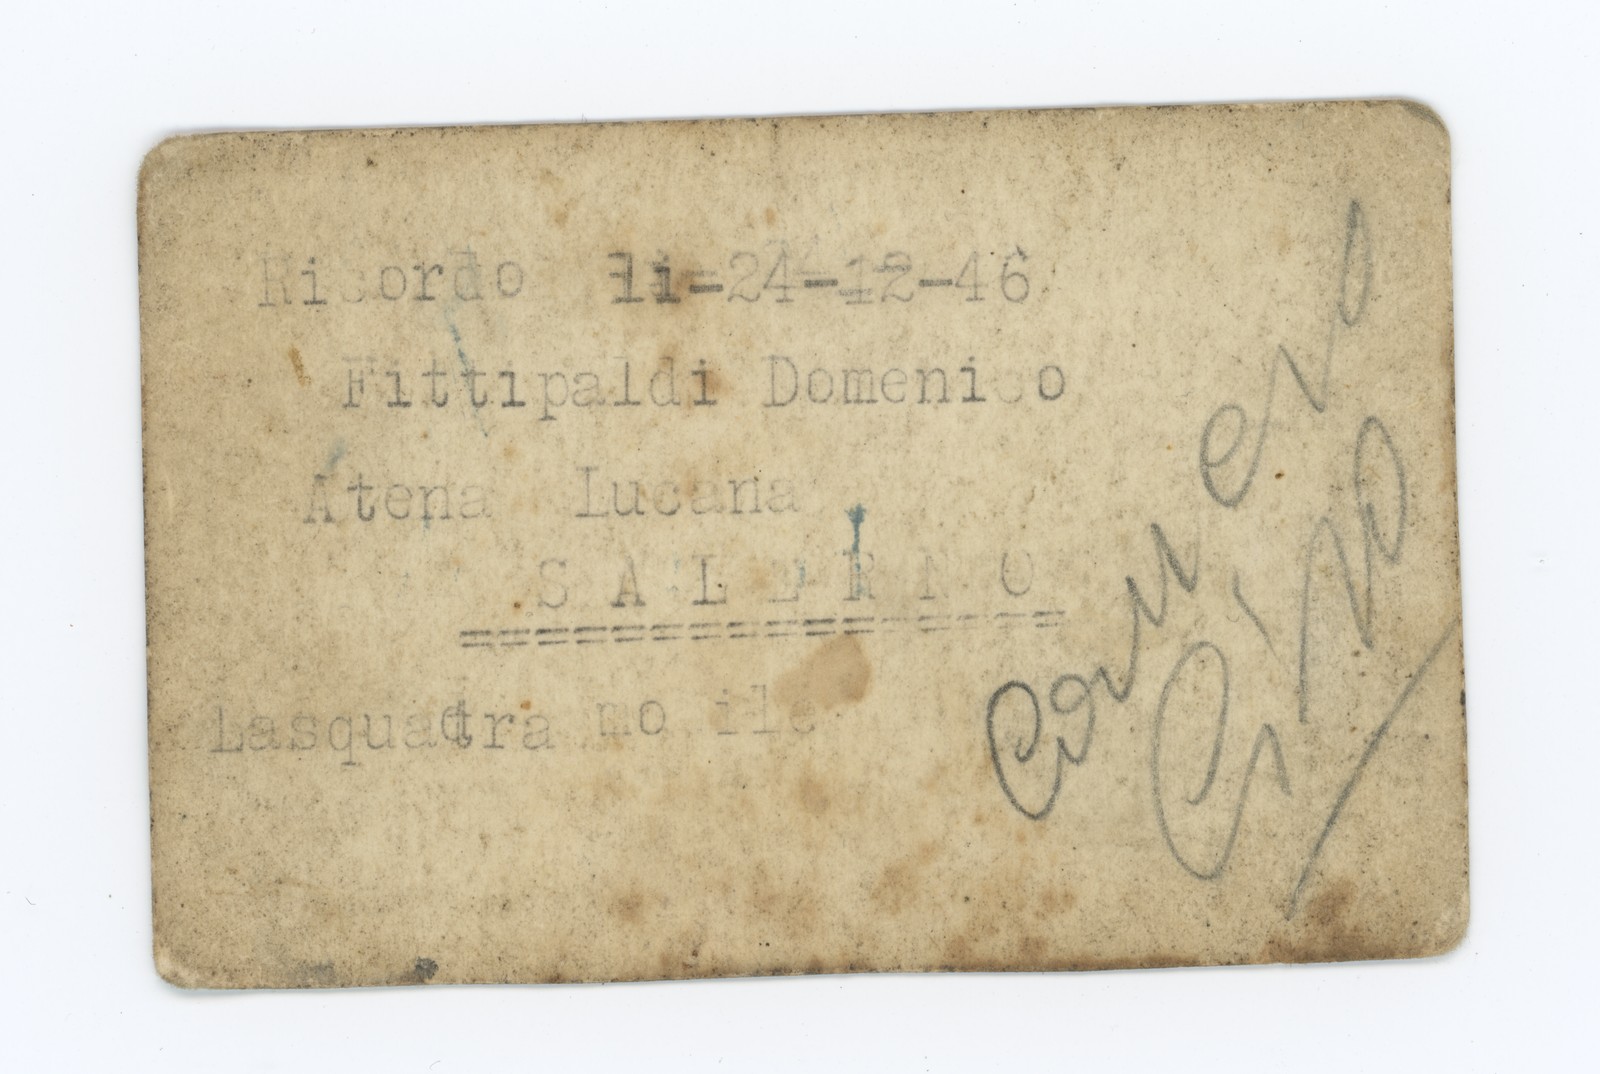 Ricordo li-24-12-46
Fittipaldi Domenico
Atena Lucana
S A L E R N O
==================
Lasquadra mo ile
Gino